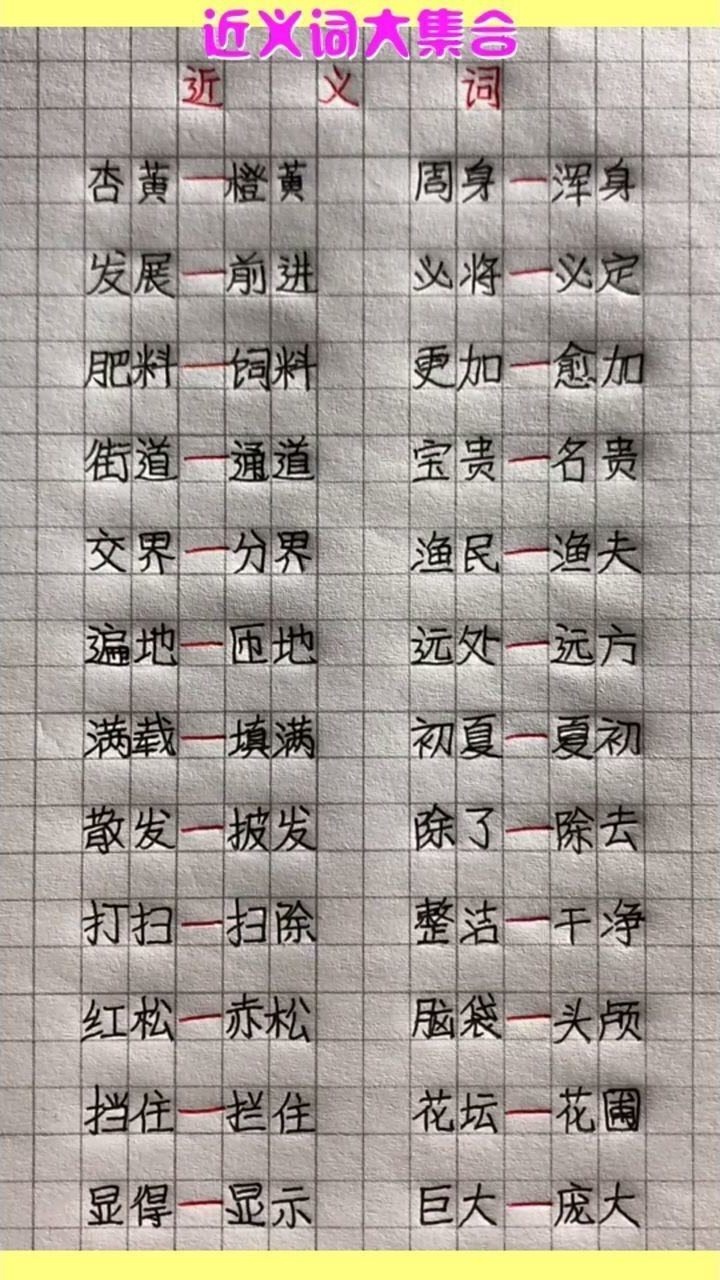 近义词大集合
近义词
杏黄—橙黄 周身—浑身
发展—前进 必将—必定
肥料—饲料 更加—愈加
街道—通道 宝贵—名贵
交界—分界 渔民—渔夫
遍地—匝地 远处—远方
满载—填满 初夏—夏初
散发—披发 除了—除去
打扫—扫除 整洁—干净
红松—赤松 脑袋—头颅
挡住—拦住 花坛—花圃
显得—显示 巨大—庞大